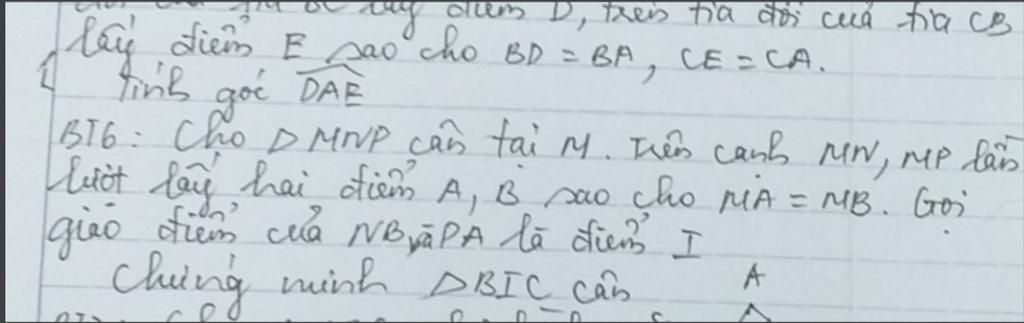 điểm D, trên tia đối của tia CB
lấy điểm E sao cho BD = BA, CE = CA.
Tính góc DAE
BT6: Cho Δ MNP cân tại M. Trên cạnh MN, MP lần
lượt lấy hai điểm A, B sao cho MA = MB. Gọi
giao điểm của NB và PA là điểm I
Chứng minh ΔBIC cân
A